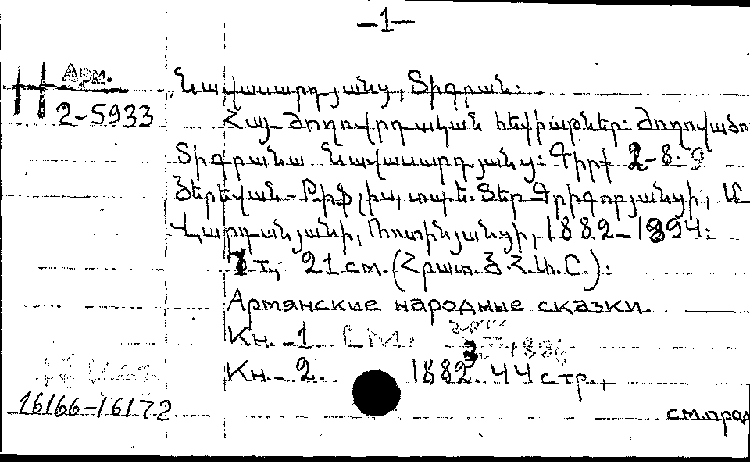 -1-
Арм.
Նավասարդյանց, Տիգրան:
2-5933
Հայ ժողովրդական հեքիաթներ: Ժողովածո
Տիգրանա Նավասարդյանց: Գիրք 2-8.
Երևան-Թիֆլիս, տպ. Տեր-Գրիգորյանցի, Մ
Վարդանյանի, Ռոտինյանցի, 1882-1894:
7 տ, 21 см. (Հրատ. Յ.Հ.Ա.С.):
Армянские народные сказки.
Кн. 1 см.
Кн. 2. 1882. 44 стр.,
16166-16172
см.прод